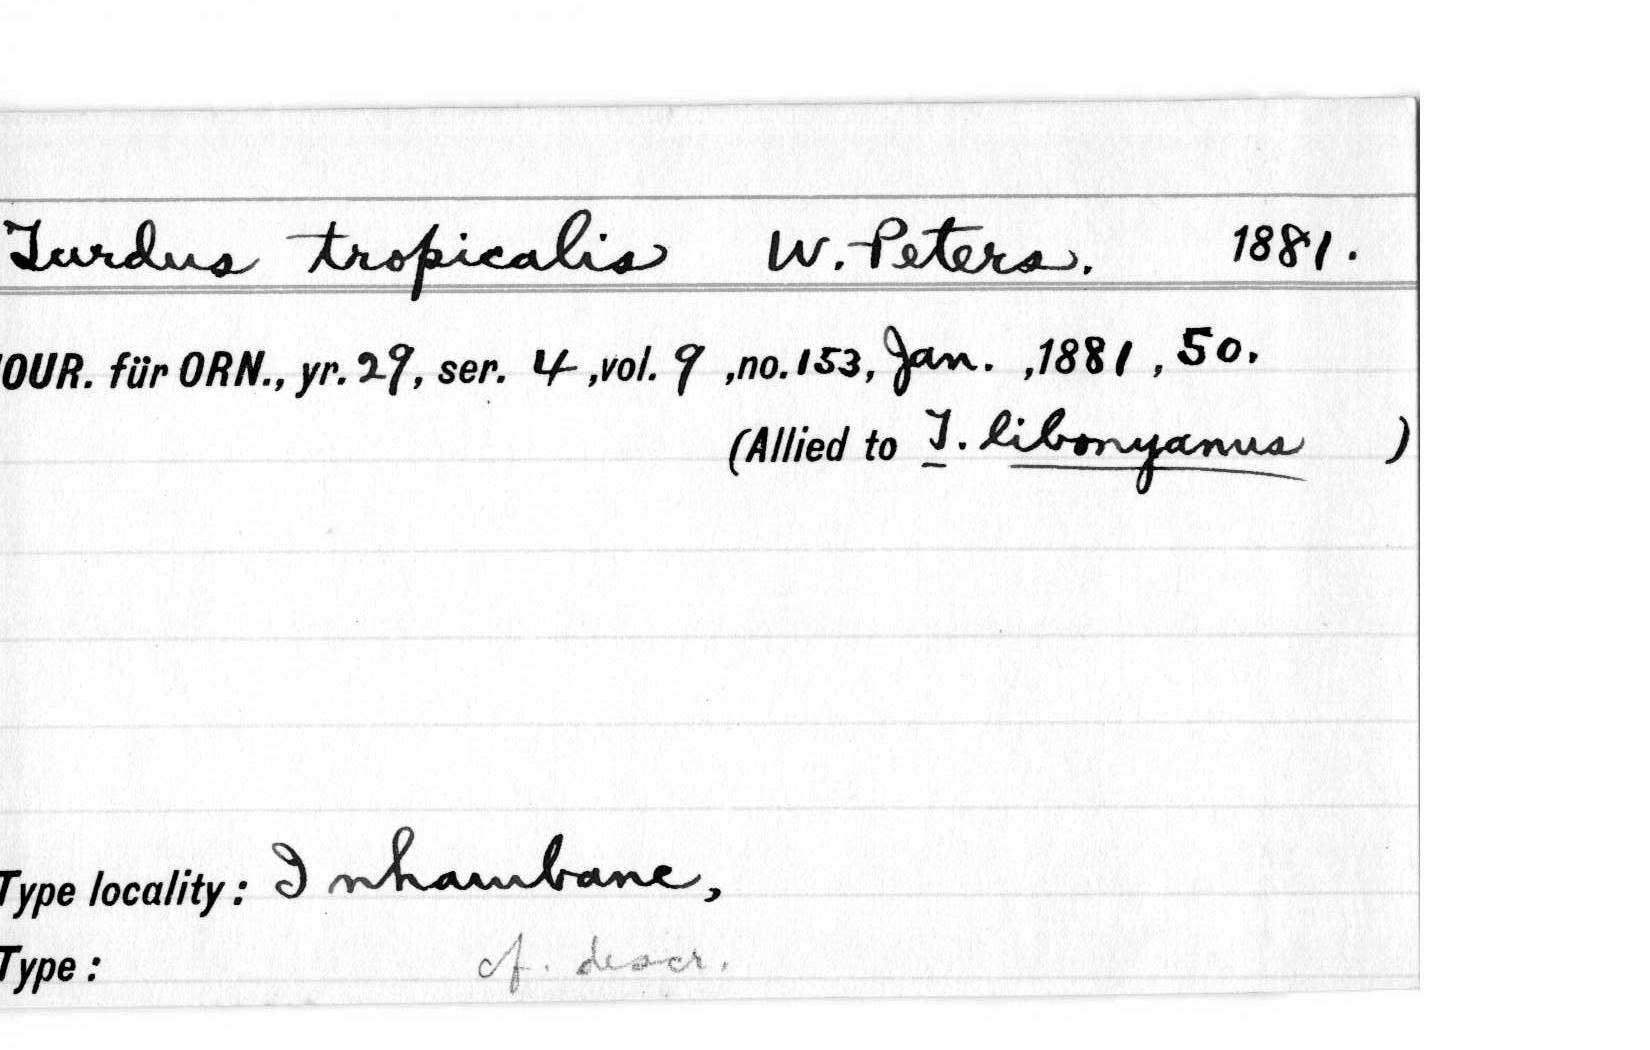 Turdus tropicalis W. Peters. 1881.
JOUR. für ORN., yr. 29, ser. 4, vol. 9, no. 153, Jan. , 1881, 50.
(Allied to T. libonyanus )
Type locality: Inhambane,
Type: cf. descr.